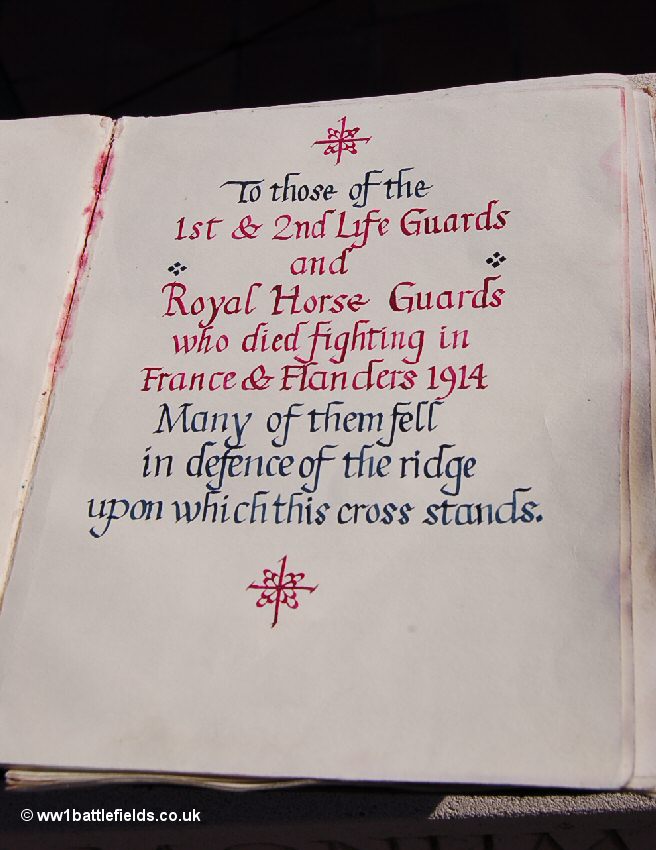 To those of the
1st & 2nd Life Guards
and
Royal Horse Guards
who died fighting in
France & Flanders 1914
Many of them fell
in defence of the ridge
upon which this cross stands.
© ww1battlefields.co.uk